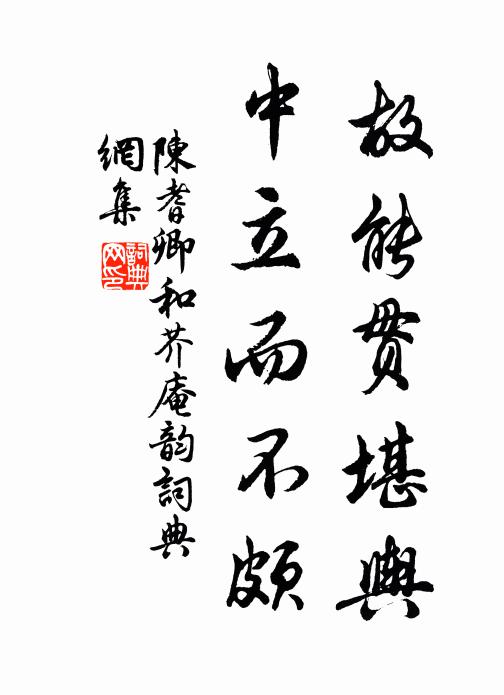 故能貫堪輿
中立而不頗
陳耆卿和芥庵韵詞典
網集
詞典
网印